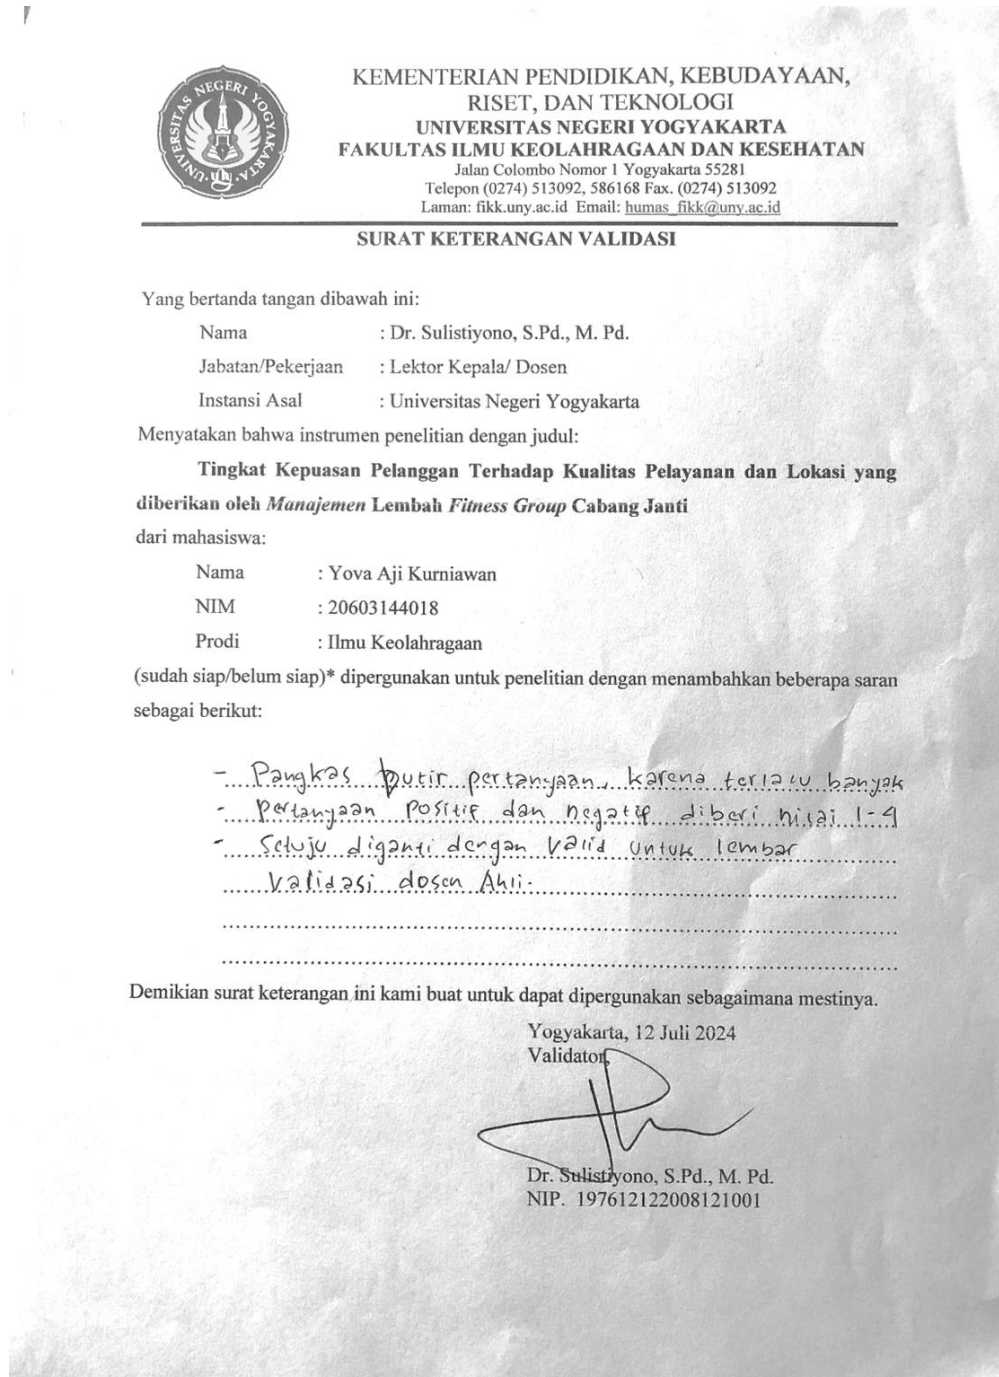 UNIVERSITAS NEGERI YOGYAKARTA
KEMENTERIAN PENDIDIKAN, KEBUDAYAAN,
RISET, DAN TEKNOLOGI
UNIVERSITAS NEGERI YOGYAKARTA
FAKULTAS ILMU KEOLAHRAGAAN DAN KESEHATAN
Jalan Colombo Nomor 1 Yogyakarta 55281
Telepon (0274) 513092, 586168 Fax. (0274) 513092
Laman: fikk.uny.ac.id Email: humas_fikk@uny.ac.id
SURAT KETERANGAN VALIDASI
Yang bertanda tangan dibawah ini:
Nama : Dr. Sulistiyono, S.Pd., M. Pd.
Jabatan/Pekerjaan : Lektor Kepala/ Dosen
Instansi Asal : Universitas Negeri Yogyakarta
Menyatakan bahwa instrumen penelitian dengan judul:
Tingkat Kepuasan Pelanggan Terhadap Kualitas Pelayanan dan Lokasi yang
diberikan oleh Manajemen Lembah Fitness Group Cabang Janti
dari mahasiswa:
Nama : Yova Aji Kurniawan
NIM : 20603144018
Prodi : Ilmu Keolahragaan
(sudah siap/belum siap)* dipergunakan untuk penelitian dengan menambahkan beberapa saran
sebagai berikut:
- Pangkas butir pertanyaan, karena terlalu banyak
- Pertanyaan positif dan negatif diberi nilai 1-4
- Setuju diganti dengan valid untuk lembar
validasi dosen Ahli.
Demikian surat keterangan ini kami buat untuk dapat dipergunakan sebagaimana mestinya.
Yogyakarta, 12 Juli 2024
Validator,
Dr. Sulistiyono, S.Pd., M. Pd.
NIP. 197612122008121001